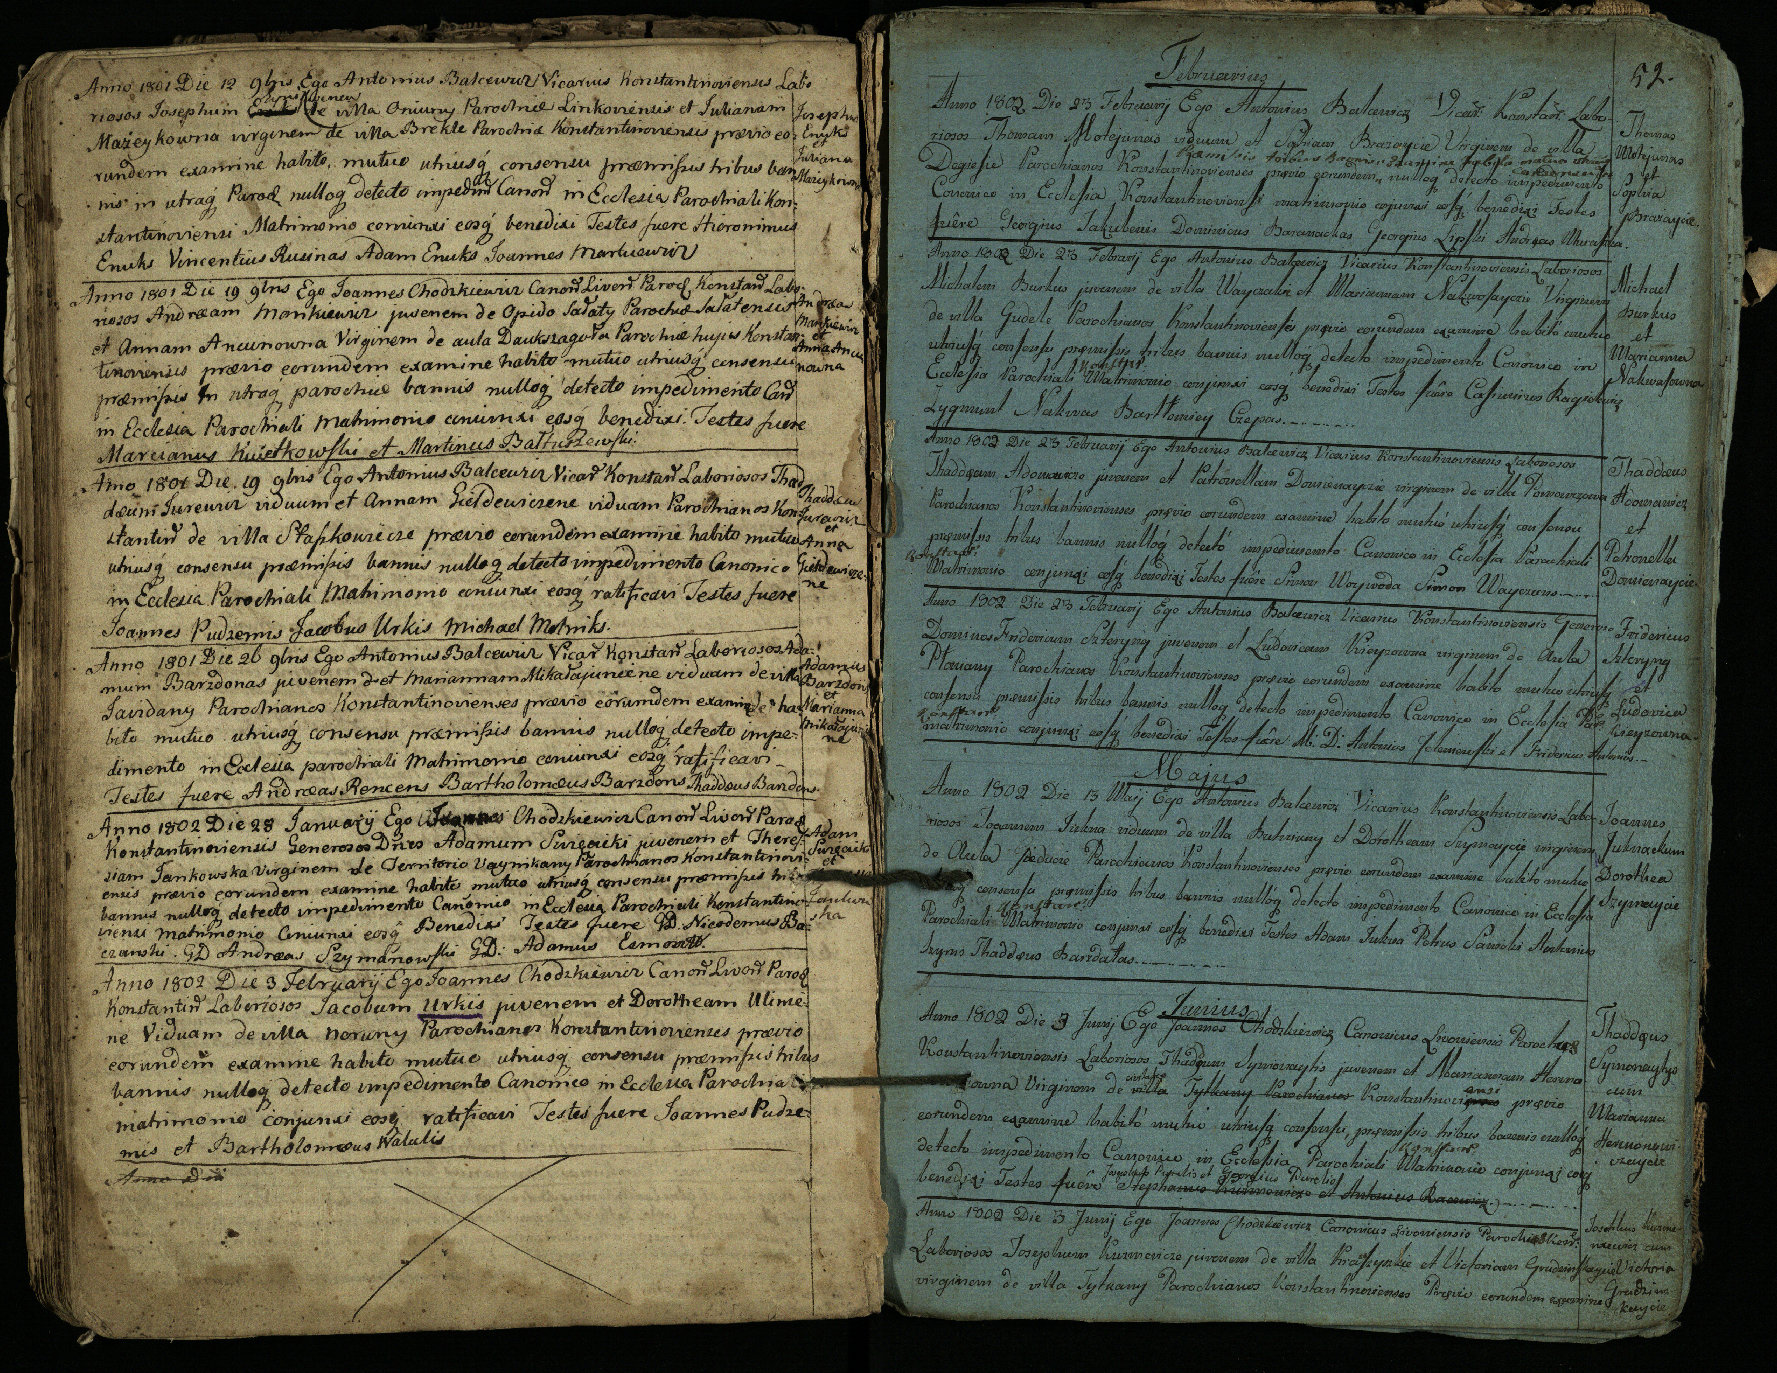 Anno 1801 Die 12 9bris Ego Antonius Balcewicz Vicarius Konstantinoviensis Labo
riosos Josephum de villa Oniuny Parochiæ Linkoviensis et Julianam
Mażeykowna virginem de villa Brekle Parochiæ Konstantinoviensis prævio eo-
rundem examine habito, mutuo utriusq consensu præmissis tribus ban
nis in utraq Paroch nulloq detecto impedim Canon in Ecclesia Parochiali Kon-
stantinoviensi Matrimonio coniunxi eosq benedixi Testes fuere Hieronimus
Enuks Vincentius Rusinas Adam Enuks Joannes Markiewicz
Josephus
Enuks
et
Juliana
Mażeykowna
Anno 1801 Die 19 9bris Ego Joannes Chodzkiewicz Canon Livon Paroch Konstan Labo-
riosos Andream Monkiewicz juvenem de Opido Sałaty Parochiæ Sałatensis
et Annam Ancunowna Virginem de aula Daukszagoła Parochiæ hujus Konstan
tinoviensis prævio eorundem examine habito mutuo utriusq consensu
præmissis in utraq parochiæ bannis nulloq detecto impedimento Can
in Ecclesia Parochiali Matrimonio coniunxi eosq benedixi. Testes fuere
Marcianus Kwiatkowski et Martinus Bałtuszewski.
Andreas
Monkiewicz
et
Anna Ancu
nowna
Anno 1801 Die 19 9bris Ego Antonius Balcewicz Vicar Konstan Laboriosos Thad
dæum Jurewicz viduum et Annam Giełdewiczene viduam Parochianos Kon
stantin de villa Staszkowicze prævio eorundem examine habito mutuo
utriusq consensu præmissis bannis nulloq detecto impedimento Canonico
in Ecclesia Parochiali Matrimonio coniunxi eosq ratificavi Testes fuere
Joannes Pudzemis Jacobus Urkis Michael Melniks.
Thaddæus
Jurewicz
et
Anna
Giełdewicze-
ne
Anno 1801 Die 26 9bris Ego Antonius Balcewicz Vicar Konstan Laboriosos Ada-
mum Barzdonas juvenem et Mariannam Mikałajuniene viduam de villa
Javidany Parochianos Konstantinovienses prævio eorundem examine ha
bito mutuo utriusq consensu præmissis bannis nulloq detecto impe-
dimento in Ecclesia parochiali Matrimonio coniunxi eosq ratificavi
Testes fuere Andreas Rencens Bartholomæus Barzdons Thaddæus Barzdons.
Adamus
Barzdons
et
Marianna
Mikałajunie
ne
Anno 1802 Die 28 January Ego Joannes Chodzkiewicz Canon Livon Paroch
Konstantinoviensis Generosos Dnos Adamum Swięcicki juvenem et There-
siam Jankowska Virginem de Territorio Uzynikany Parochianos Konstantinovi-
enses prævio eorundem examine habito mutuo utriusq consensu præmissis tribus
bannis nulloq detecto impedimento Canonico in Ecclesia Parochiali Konstantino-
viensi Matrimonio Coniunxi eosq Benedixi Testes fuere GD. Nicodemus Ba-
czanski. GD Andreas Szymanowski GD. Adamus Eymont.
Adam
Swięcicki
et
Jankow
ska
Anno 1802 Die 3 February Ego Joannes Chodzkiewicz Canon Livon Paroch
Konstantin Laboriosos Jacobum Urkis juvenem et Dorotheam Ulime-
ne Viduam de villa Noruny Parochianos Konstantinovienses prævio
eorundem examine habito mutuo utriusq consensu præmissis tribus
bannis nulloq detecto impedimento Canonico in Ecclesia Parochia
matrimonio conjunxi eosq ratificavi Testes fuere Joannes Pudze-
mis et Bartholomæus Walulis
Anno Die
52.
Februarius
Anno 1802 Die 23 Februarij Ego Antonius Balcewicz Vicari Konstan Labo-
riosos Thomam Motejunas viduum et Sophiam Brazaycie Virginem de villa
Degiesie Parochianos Konstantinovienses prævio eorundem nulloq detecto impedimento
Canonico in Ecclesia Konstantinoviensi matrimonio conjunxi eosq benedixi Testes
fuêre Georgius Jakubenis Dominicus Baranackas Georgius Lipski Andreas
Thomas
Motejunas
et
Sophia
Brazaycie
Anno 1802 Die 23 Februarij Ego Antonius Balcewicz Vicarius Konstantinoviensis Laboriosos
Michalem Burkus juvenem de villa Wayczaki et Mariannam Nakwosaycie Virginem
de villa Gudele Parochianos Konstantinovienses prævio eorundem examine habito mutuo
utriusq consensu præmissis tribus bannis nulloq detecto impedimento Canonico in
Ecclesia Parochiali Konstan Matrimonio conjunxi eosq benedixi Testes fuêre Casimirus
Zygmunt Nakwas Bartłomiey Czepas
Michael
Burkus
et
Marianna
Nakwasowna
Anno 1802 Die 23 Februarij Ego Antonius Balcewicz Vicarius Konstantinoviensis Laboriosos
Thaddæum Adomowicz juvenem et Petronellam Domenaycie virginem de villa
Parochianos Konstantinovienses prævio eorundem examine habito mutuo utriusq consensu
præmissis tribus bannis nulloq detecto impedimento Canonico in Ecclesia Parochiali
Matrimonio conjunxi eosq benedixi Testes fuêre Simon Woywoda Simon
Thaddæus
Adomawicz
et
Petronella
Domienaycie
Anno 1802 Die 23 Februarij Ego Antonius Balcewicz Vicarius Konstantinoviensis Generosos
Dominos Fridericum Szteryng juvenem et Ludovicam Kieyzowna virginem de Aula
Ploniany Parochianos Konstantinovienses prævio eorundem examine habito mutuo utriusq
consensu præmissis tribus bannis nulloq detecto impedimento Canonico in Ecclesia Paro
matrimonio conjunxi eosq benedixi Testes fuêre M. D. Antonius et Fridericus
Fridericus
Szteryng
et
Ludovica
Kieyzowna
Majus
Anno 1802 Die 13 Maij Ego Antonius Balcewicz Vicarius Konstantinoviensis Labo-
riosos Joannem Jukna viduum de villa et Dorotheam Szymaycie virginem
de Aula Parochianos Konstantinovienses prævio eorundem examine habito mutuo
consensu præmissis tribus bannis nulloq detecto impedimento Canonico in Ecclesia
Parochiali Matrimonio conjunxi eosq benedixi Testes Adam Jukna Petrus Antonius
Szyms Thaddæus Barzdatas
Joannes
Jukna cum
Dorothea
Szymaycie
Junius
Anno 1802 Die 3 Junij Ego Joannes Chodzkiewicz Canonicus Livoniensis Parochus
Konstantinoviensis Laboriosos Thaddæum Symonaytys juvenem et Mariannam
Virginem de villa Tytkany Parochianos Konstantinovi prævio
eorundem examine habitô mutuô utriusq consensu, præmissis tribus bannis nulloq
detecto impedimento Canonico in Ecclesia Parochiali Matrimonio conjunxi eosq
benedixi Testes fuêre Stephanus et Antonius
Thaddæus
Symonaytys
cum
Marianna
Anno 1802 Die 3 Junij Ego Joannes Chodzkiewicz Canonicus Livoniensis Parochus Konst.
Laboriosos Josephum juvenem de villa et Victoriam
virginem de villa Tytkany Parochianos Konstantinovienses Prævio eorundem examine
Josephus
cum
Victoria